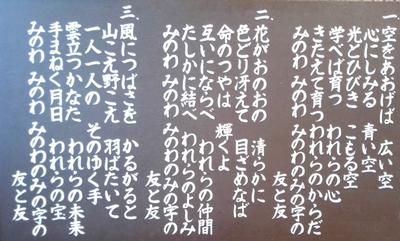 一、空をあおげば　広い空
心にしみる　青い空
光とひびき　こもる空
学べば育つ　われらの心
きたえて育つ　われらのからだ
みのわ　みのわ　みのわのみの字の
友と友
二、花がおのおの　清らかに
色どり冴えて　目ざめなば
命のつやは　輝くよ
互いにならべ　われらの仲間
たしかに結べ　われらのよしみ
みのわ　みのわ　みのわのみの字の
友と友
三、風につばさを　かるがると
山こえ野こえ　羽ばたいて
一人一人の　そのゆく手
雲立つかなた　われらの未来
手まねく月日　われらの宝
みのわ　みのわ　みのわのみの字の
友と友